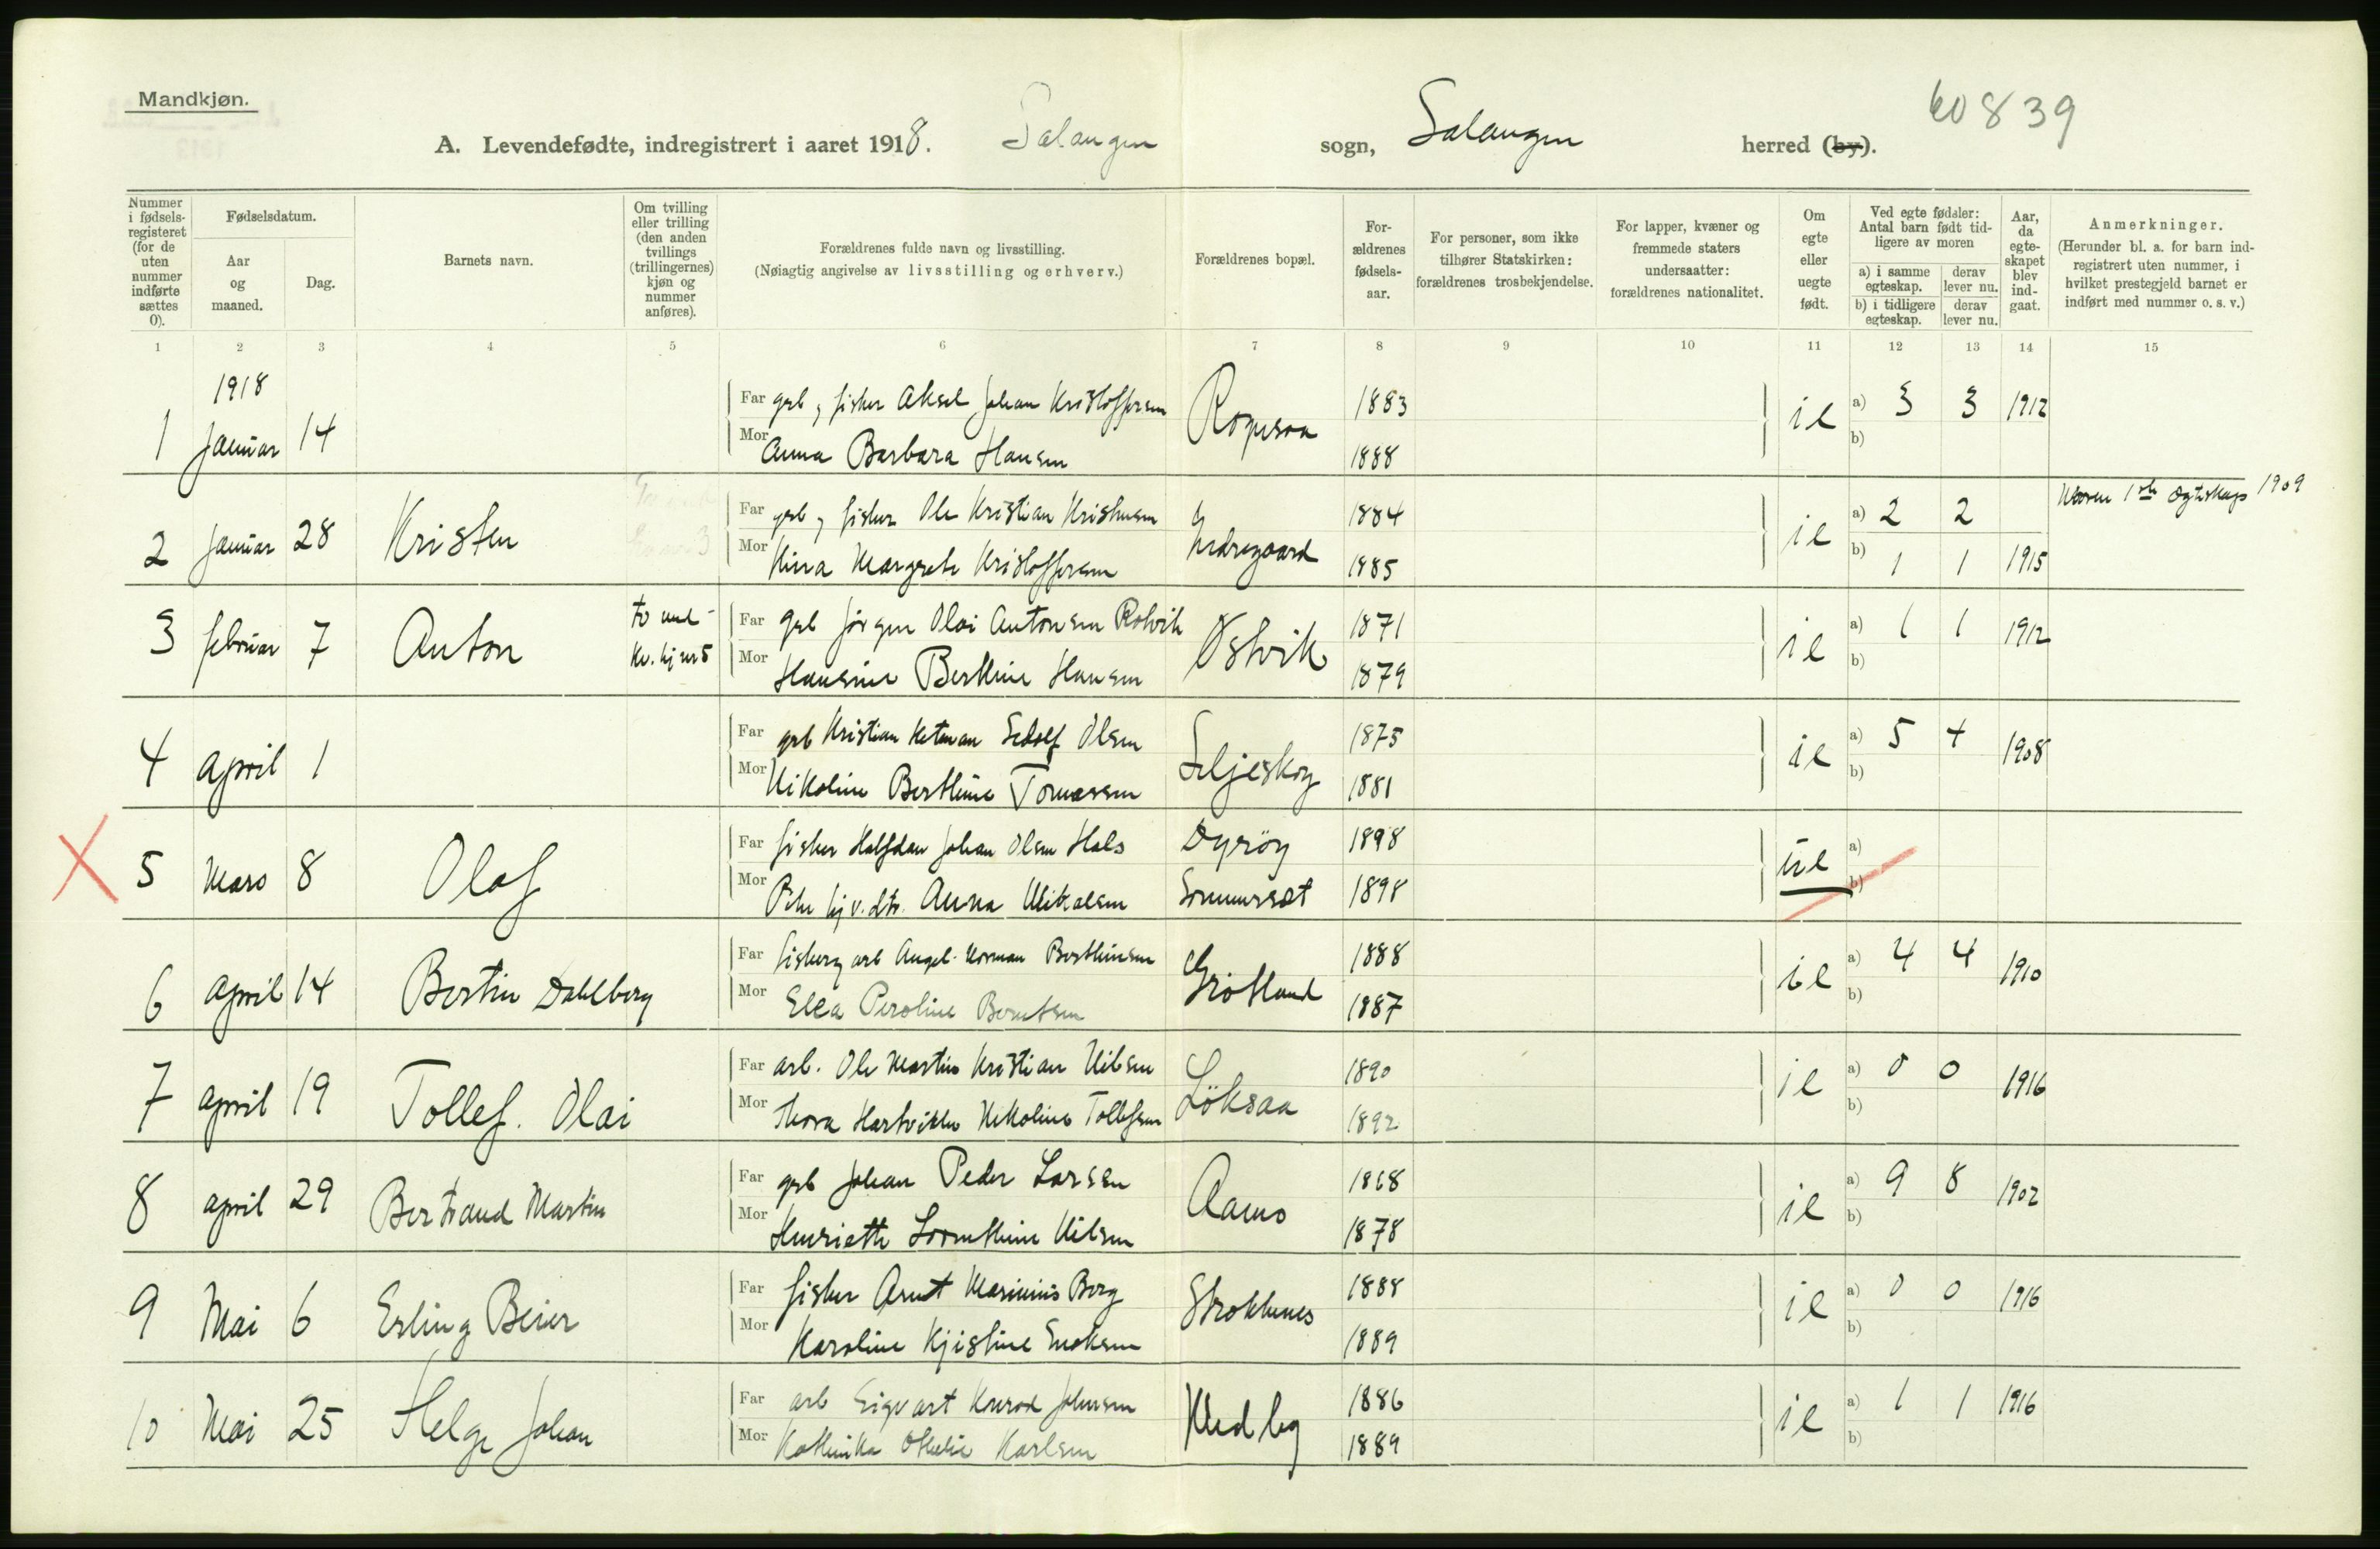 Mandkjøn.
60839
A. Levendefødte, indregistrert i aaret 1918. Salangen sogn, Salangen herred (by).
Nummer i fødsels-registeret (for de uten nummer indførte sættes 0).
Fødselsdatum.
Aar og maaned.
Dag.
Barnets navn.
Om tvilling eller trilling (den anden tvillings (trillingernes) kjøn og nummer anføres).
Forældrenes fulde navn og livsstilling.
(Nøiagtig angivelse av livsstilling og erhverv.)
Forældrenes bopæl.
For-ældrenes fødsels-aar.
For personer, som ikke tilhører Statskirken: forældrenes trosbekjendelse.
For lapper, kvæner og fremmede staters undersaatter: forældrenes nationalitet.
Om egte eller uegte født.
Ved egte fødsler: Antal barn født tid-ligere av moren
a) i samme egteskap. derav lever nu.
b) i tidligere egteskap. derav lever nu.
Aar, da egte-skapet blev ind-gaat.
Anmerkninger.
(Herunder bl. a. for barn ind-registrert uten nummer, i hvilket prestegjeld barnet er indført med nummer o. s. v.)
1 2 3 4 5 6 7 8 9 10 11 12 13 14 15
1918
1 Januar 14
Far grb, fisker Aksel Johan Kristoffersen 1883
Mor Anna Barbara Hansen 1888
ie a) 3 3 1912
b)
2 Januar 28 Kristen
Far grb, fisker Ole Kristian Kristensen 1884
Mor Margrete Kristoffersen 1885
ie a) 2 2
b) 1 1 1915
1ste Ægteskap 1909
3 februar 7 Anton
Far grb Jörgen Olai Antonsen Rotvik Østvik 1871
Mor Hansine Berthine Hansen 1879
ie a) 1 1 1912
b)
4 april 1
Far grb Kristian Edolf Olsen Seljeskog 1875
Mor Nikoline Berthine Tomassen 1881
ie a) 5 4 1908
b)
5 Mars 8 Olaf
Far fisker Halfdan Johan Olsen Hals Dyröy 1898
Mor Anna Mikalsen Sommersæt 1898
ue a)
b)
6 april 14 Bertin Dahlberg
Far fisker, arb Angel Norman Berthinsen Grötland 1888
Mor Elea Peroline Berntsen 1887
ie a) 4 4 1910
b)
7 april 19 Tollef. Olai
Far arb. Ole Martin Kristian Nilsen Löksaa 1890
Mor Thora Hartvikke Nikoline Tollefsen 1892
ie a) 0 0 1916
b)
8 april 29 Bertrand Martin
Far grb Johan Peder Larsen Aamo 1868
Mor Henriette Lorenthine Nilsen 1878
ie a) 9 8 1902
b)
9 Mai 6 Erling Beier
Far fisker Arnt Marinius Berg Strokkenes 1888
Mor Karoline Kjistine Enoksen 1889
ie a) 0 0 1916
b)
10 Mai 25 Helge Johan
Far arb Sigvart Konrad Johnsen Medby 1886
Mor Kathinka Othelie Karlsen 1889
ie a) 1 1 1916
b)